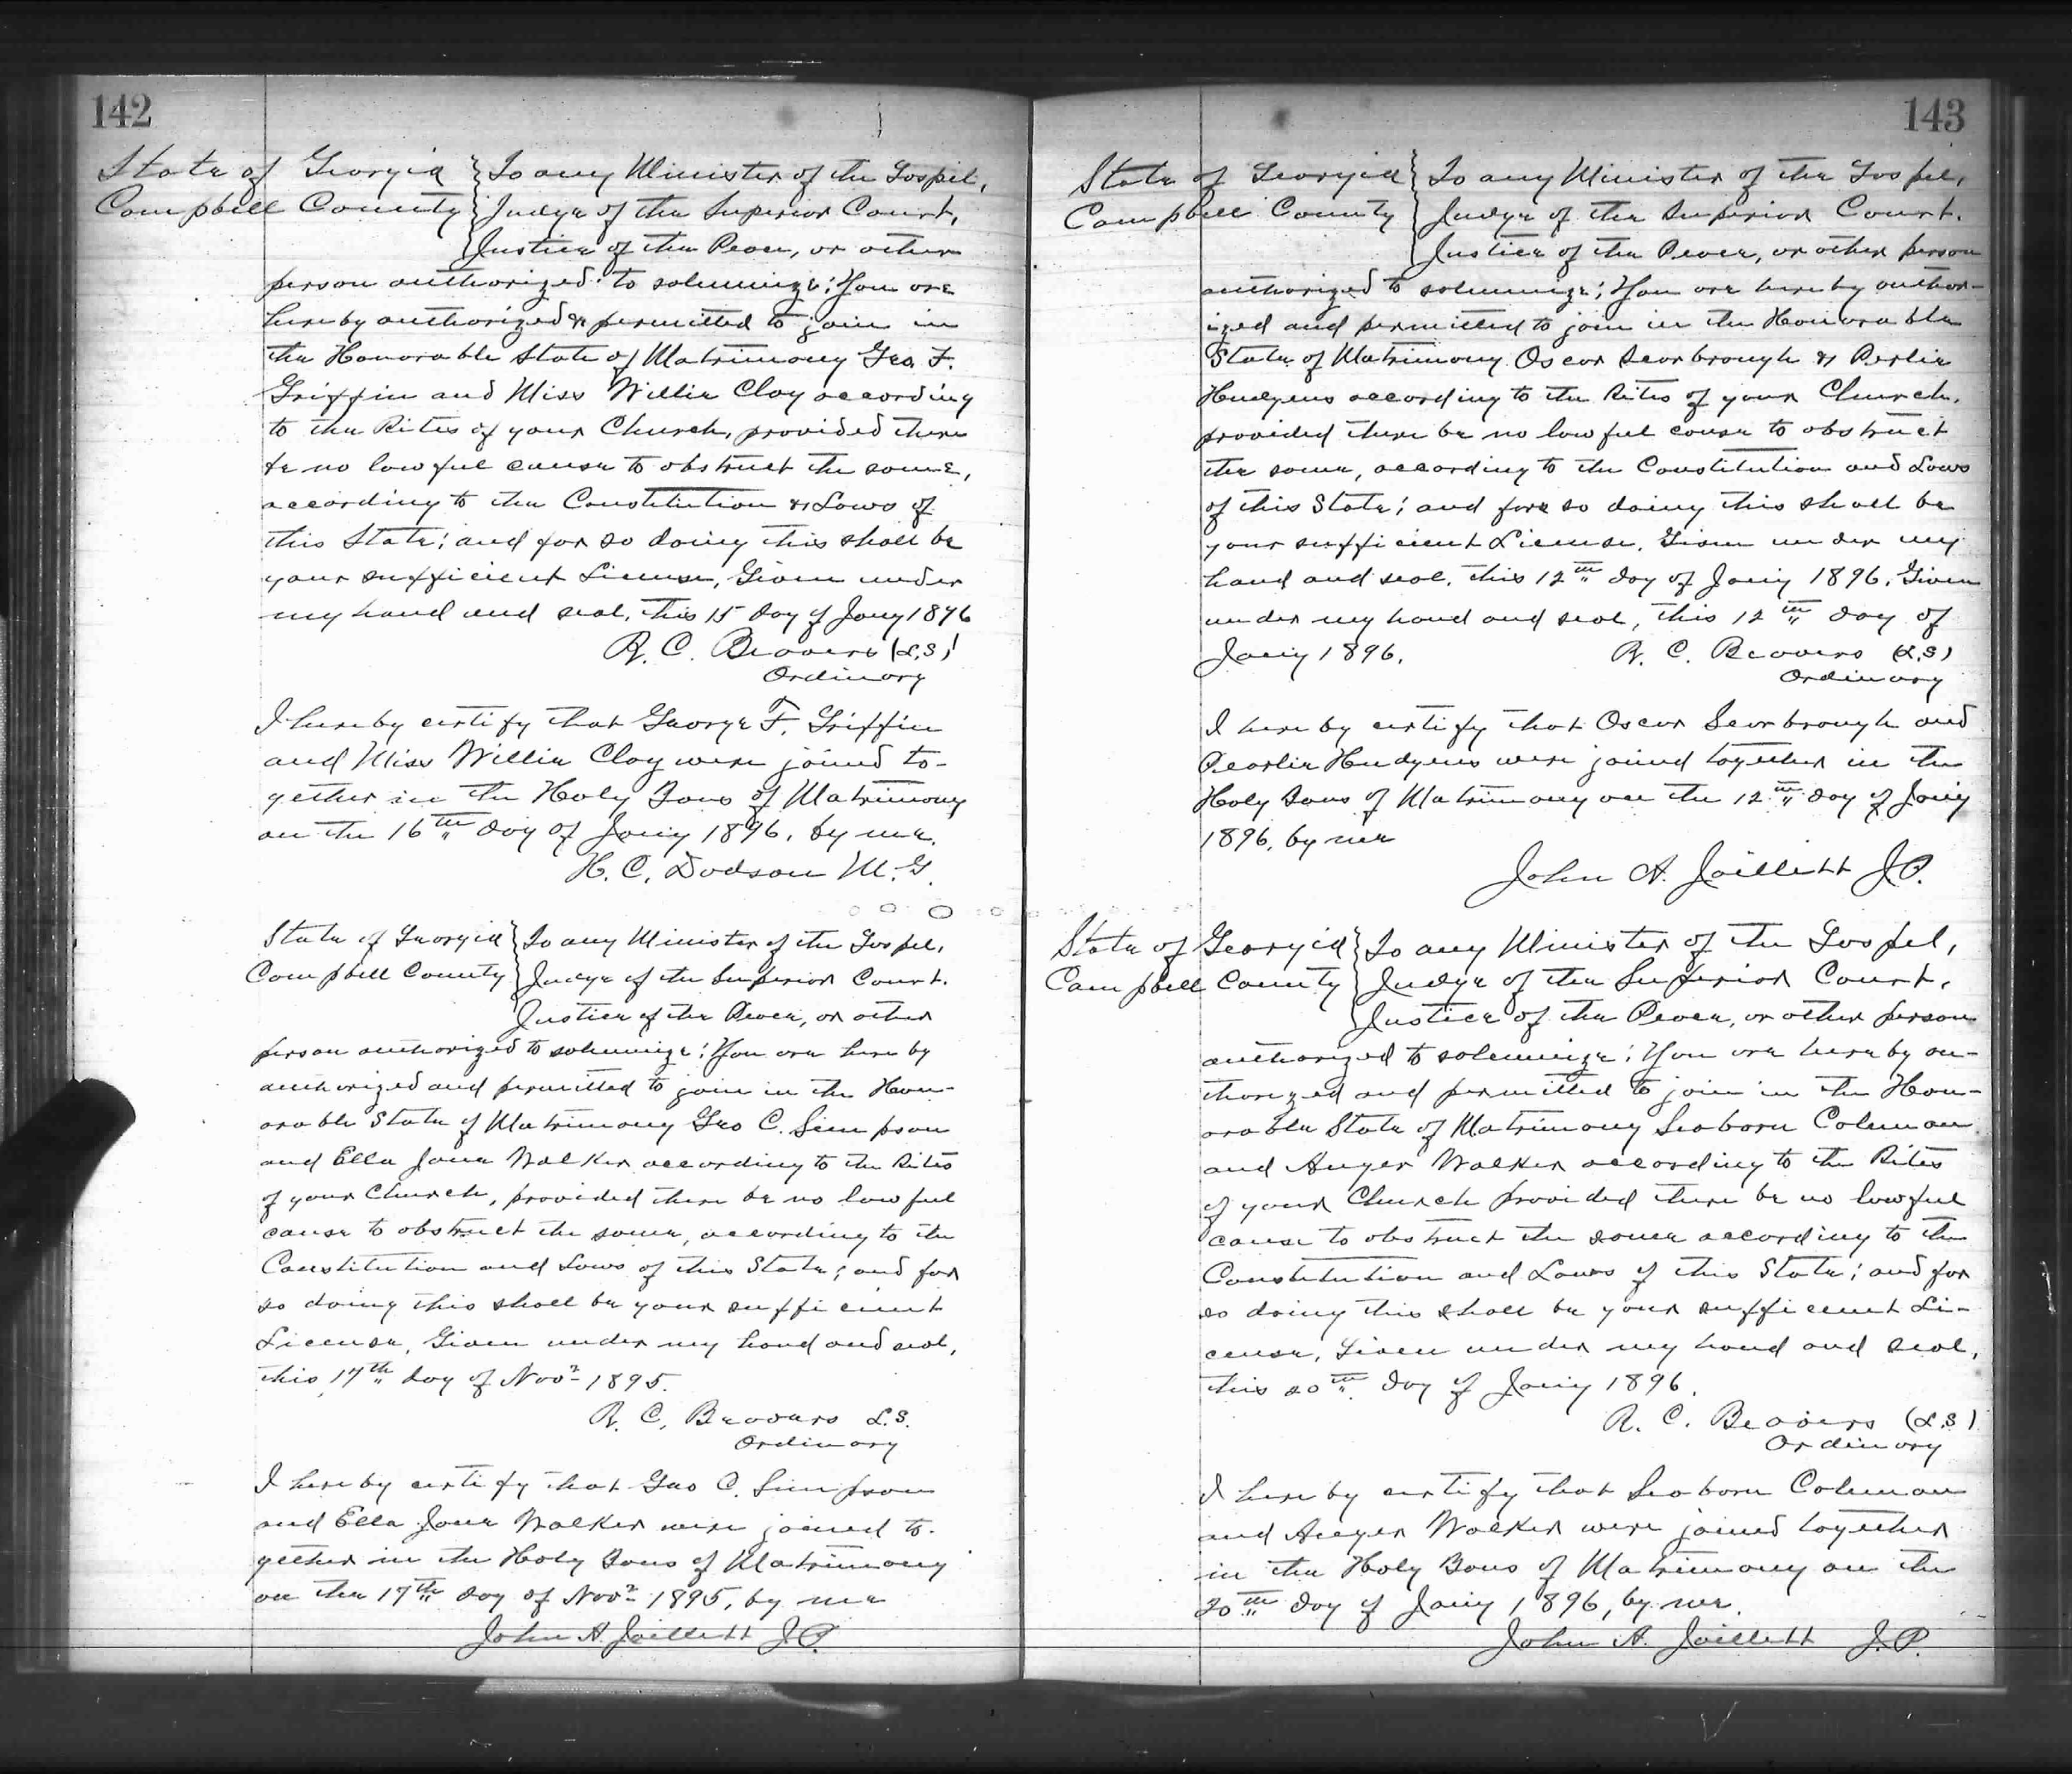 142
State of Georgia } To any Minister of the Gospel,
Campbell County } Judge of the Superior Court,
Justice of the Peace, or other
person authorized to solemnize; You are
hereby authorized & permitted to join in
the Honorable State of Matrimony Geo. F.
Griffin and Miss Willie Clay according
to the Rites of your Church, provided there
be no lawful cause to obstruct the same,
according to the Constitution & Laws of
this State; and for so doing this shall be
your sufficient License, Given under
my hand and seal, this 15 day of Jany 1896
R. C. Beavers (L.S)
Ordinary
I hereby certify that George F. Griffin
and Miss Willie Clay were joined to-
gether in the Holy Bans of Matrimony
on the 16th day of Jany 1896, by me.
H. C. Dodson M.G.
State of Georgia } To any Minister of the Gospel,
Campbell County } Judge of the Superior Court.
Justice of the Peace, or other
person authorized to solemnize; You are hereby
authorized and permitted to join in the Hon-
orable State of Matrimony Geo C. Simpson
and Ella Jane Walker according to the Rites
of your Church, provided there be no lawful
cause to obstruct the same, according to the
Constitution and Laws of this State; and for
so doing this shall be your sufficient
License, Given under my hand and seal,
this 17th day of Novr 1895.
R. C. Beavers L.S.
Ordinary
I hereby certify that Geo C. Simpson
and Ella Jane Walker were joined to-
gether in the Holy Bans of Matrimony
on the 17th day of Novr 1895, by me
John A. Jaillett J.P.
143
State of Georgia } To any Minister of the Gospel,
Campbell County } Judge of the Superior Court.
Justice of the Peace, or other person
authorized to solemnize; You are hereby author-
ized and permitted to join in the Honorable
State of Matrimony Oscar Scarbrough & Perlie
Hudgens according to the Rites of your Church,
provided there be no lawful cause to obstruct
the same, according to the Constitution and Laws
of this State; and for so doing this shall be
your sufficient License. Given under my
hand and seal, this 12th day of Jany 1896. Given
under my hand and seal, this 12th day of
Jany 1896. R. C. Beavers (L.S)
Ordinary
I hereby certify that Oscar Scarbrough and
Pearlie Hudgens were joined together in the
Holy Bans of Matrimony on the 12th day of Jany
1896, by me
John A. Jaillett J.P.
State of Georgia } To any Minister of the Gospel,
Campbell County } Judge of the Superior Court,
Justice of the Peace, or other person
authorized to solemnize; You are hereby au-
thorized and permitted to join in the Hon-
orable State of Matrimony Seaborn Coleman
and Walker according to the Rites
of your Church provided there be no lawful
cause to obstruct the same according to the
Constitution and Laws of this State; and for
so doing this shall be your sufficient Li-
cense, Given under my hand and seal,
this 20th day of Jany 1896.
R. C. Beavers (L.S)
Ordinary
I hereby certify that Seaborn Coleman
and Walker were joined together
in the Holy Bans of Matrimony on the
20th day of Jany 1896, by me.
John A. Jaillett J.P.